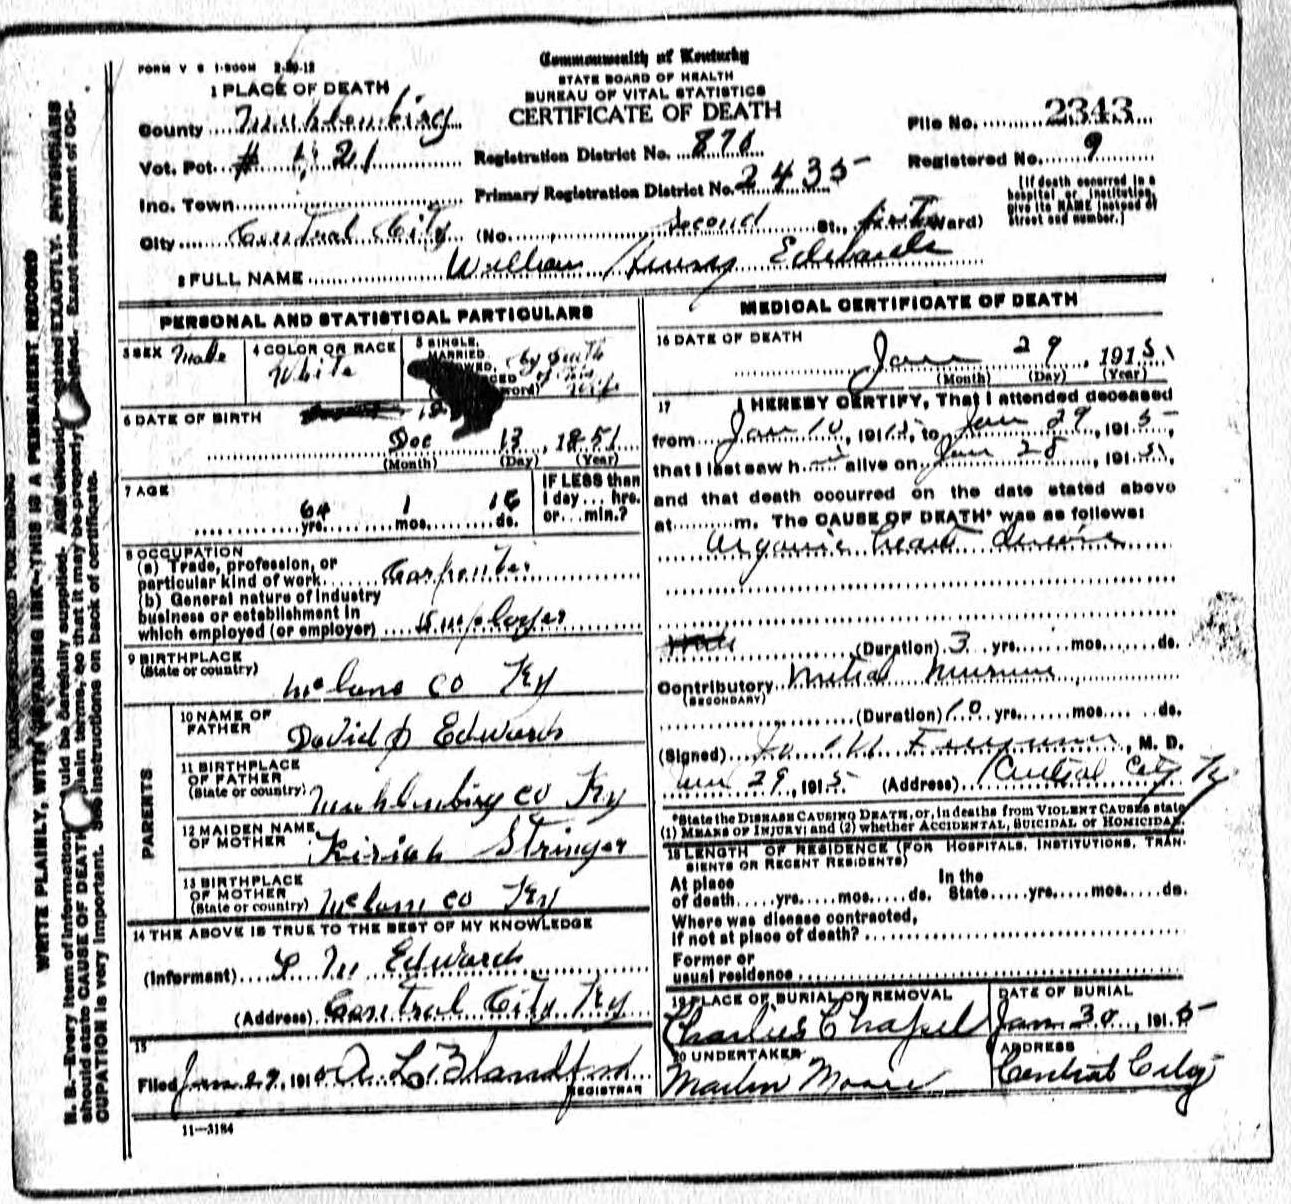 FORM V S 1-500M 2-20-12
Commonwealth of Kentucky
STATE BOARD OF HEALTH
BUREAU OF VITAL STATISTICS
CERTIFICATE OF DEATH
1 PLACE OF DEATH
County Muhlenberg
Vot. Pct. # 21
Inc. Town
City Central City (No. Second St., first Ward)
Registration District No. 876
Primary Registration District No. 2435
File No. 2343
Registered No. 9
[If death occurred in a
hospital or institution,
give its NAME instead of
street and number.]
2 FULL NAME William Henry Edwards
PERSONAL AND STATISTICAL PARTICULARS
3 SEX Male
4 COLOR OR RACE White
5 SINGLE, MARRIED, by death of his wife
6 DATE OF BIRTH
Dec 13, 1851
(Month) (Day) (Year)
7 AGE
64 yrs. 1 mos. 16 ds.
IF LESS than
1 day... hrs.
or... min.?
8 OCCUPATION
(a) Trade, profession, or
particular kind of work Carpenter
(b) General nature of industry
business or establishment in
which employed (or employer) Employer
9 BIRTHPLACE
(State or country) McLane Co Ky
PARENTS
10 NAME OF
FATHER David D Edwards
11 BIRTHPLACE
OF FATHER
(State or country) Muhlenberg Co Ky
12 MAIDEN NAME
OF MOTHER Kiriah Stringer
13 BIRTHPLACE
OF MOTHER
(State or country) McLane Co Ky
14 THE ABOVE IS TRUE TO THE BEST OF MY KNOWLEDGE
(Informant) L M Edwards
(Address) Central City Ky
15
Filed Jan 29, 1915 A L Blandford
REGISTRAR
11—3184
MEDICAL CERTIFICATE OF DEATH
16 DATE OF DEATH
Jan 29, 1915
(Month) (Day) (Year)
17 I HEREBY CERTIFY, That I attended deceased
from Jan 10, 1915, to Jan 29, 1915
that I last saw h alive on Jan 28, 1915,
and that death occurred on the date stated above
at m. The CAUSE OF DEATH* was as follows:
Organic heart disease
(Duration) 3 yrs. mos. ds.
Contributory Mitral Murmur
(SECONDARY)
(Duration) 10 yrs. mos. ds.
(Signed) M. D.
Jan 29, 1915 (Address) Central City Ky
*State the DISEASE CAUSING DEATH, or, in deaths from VIOLENT CAUSES state
(1) MEANS OF INJURY; and (2) whether ACCIDENTAL, SUICIDAL or HOMICIDAL.
18 LENGTH OF RESIDENCE (FOR HOSPITALS, INSTITUTIONS, TRAN-
SIENTS OR RECENT RESIDENTS)
At place In the
of death yrs. mos. ds. State yrs. mos. ds.
Where was disease contracted,
if not at place of death?
Former or
usual residence
19 PLACE OF BURIAL OR REMOVAL
Charlies Chapel
DATE OF BURIAL
Jan 30, 1915
20 UNDERTAKER
Martin Moore
ADDRESS
Central City
WRITE PLAINLY, WITH UNFADING INK—THIS IS A PERMANENT RECORD
N. B.—Every item of information should be carefully supplied. AGE should be stated EXACTLY. PHYSICIANS
should state CAUSE OF DEATH in plain terms, so that it may be properly classified. Exact statement of OC-
CUPATION is very important. See instructions on back of certificate.